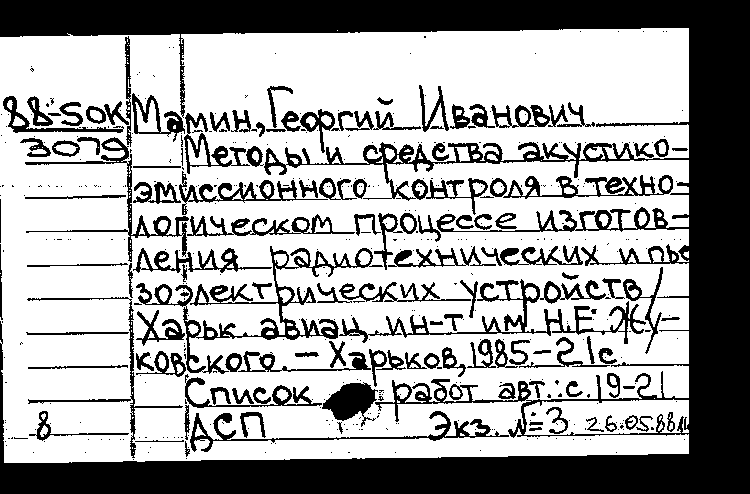 88-5ОК Мамин, Георгий Иванович
3079 Методы и средства акустико-
эмиссионного контроля в техно-
логическом процессе изготов-
ления радиотехнических и пье
зоэлектрических устройств /
Харьк. авиац. ин-т им. Н.Е. Жу-
ковского. – Харьков, 1985. – 21с.
Список работ авт.: с. 19-21.
8 ДСП Экз. №3. 26.05.88